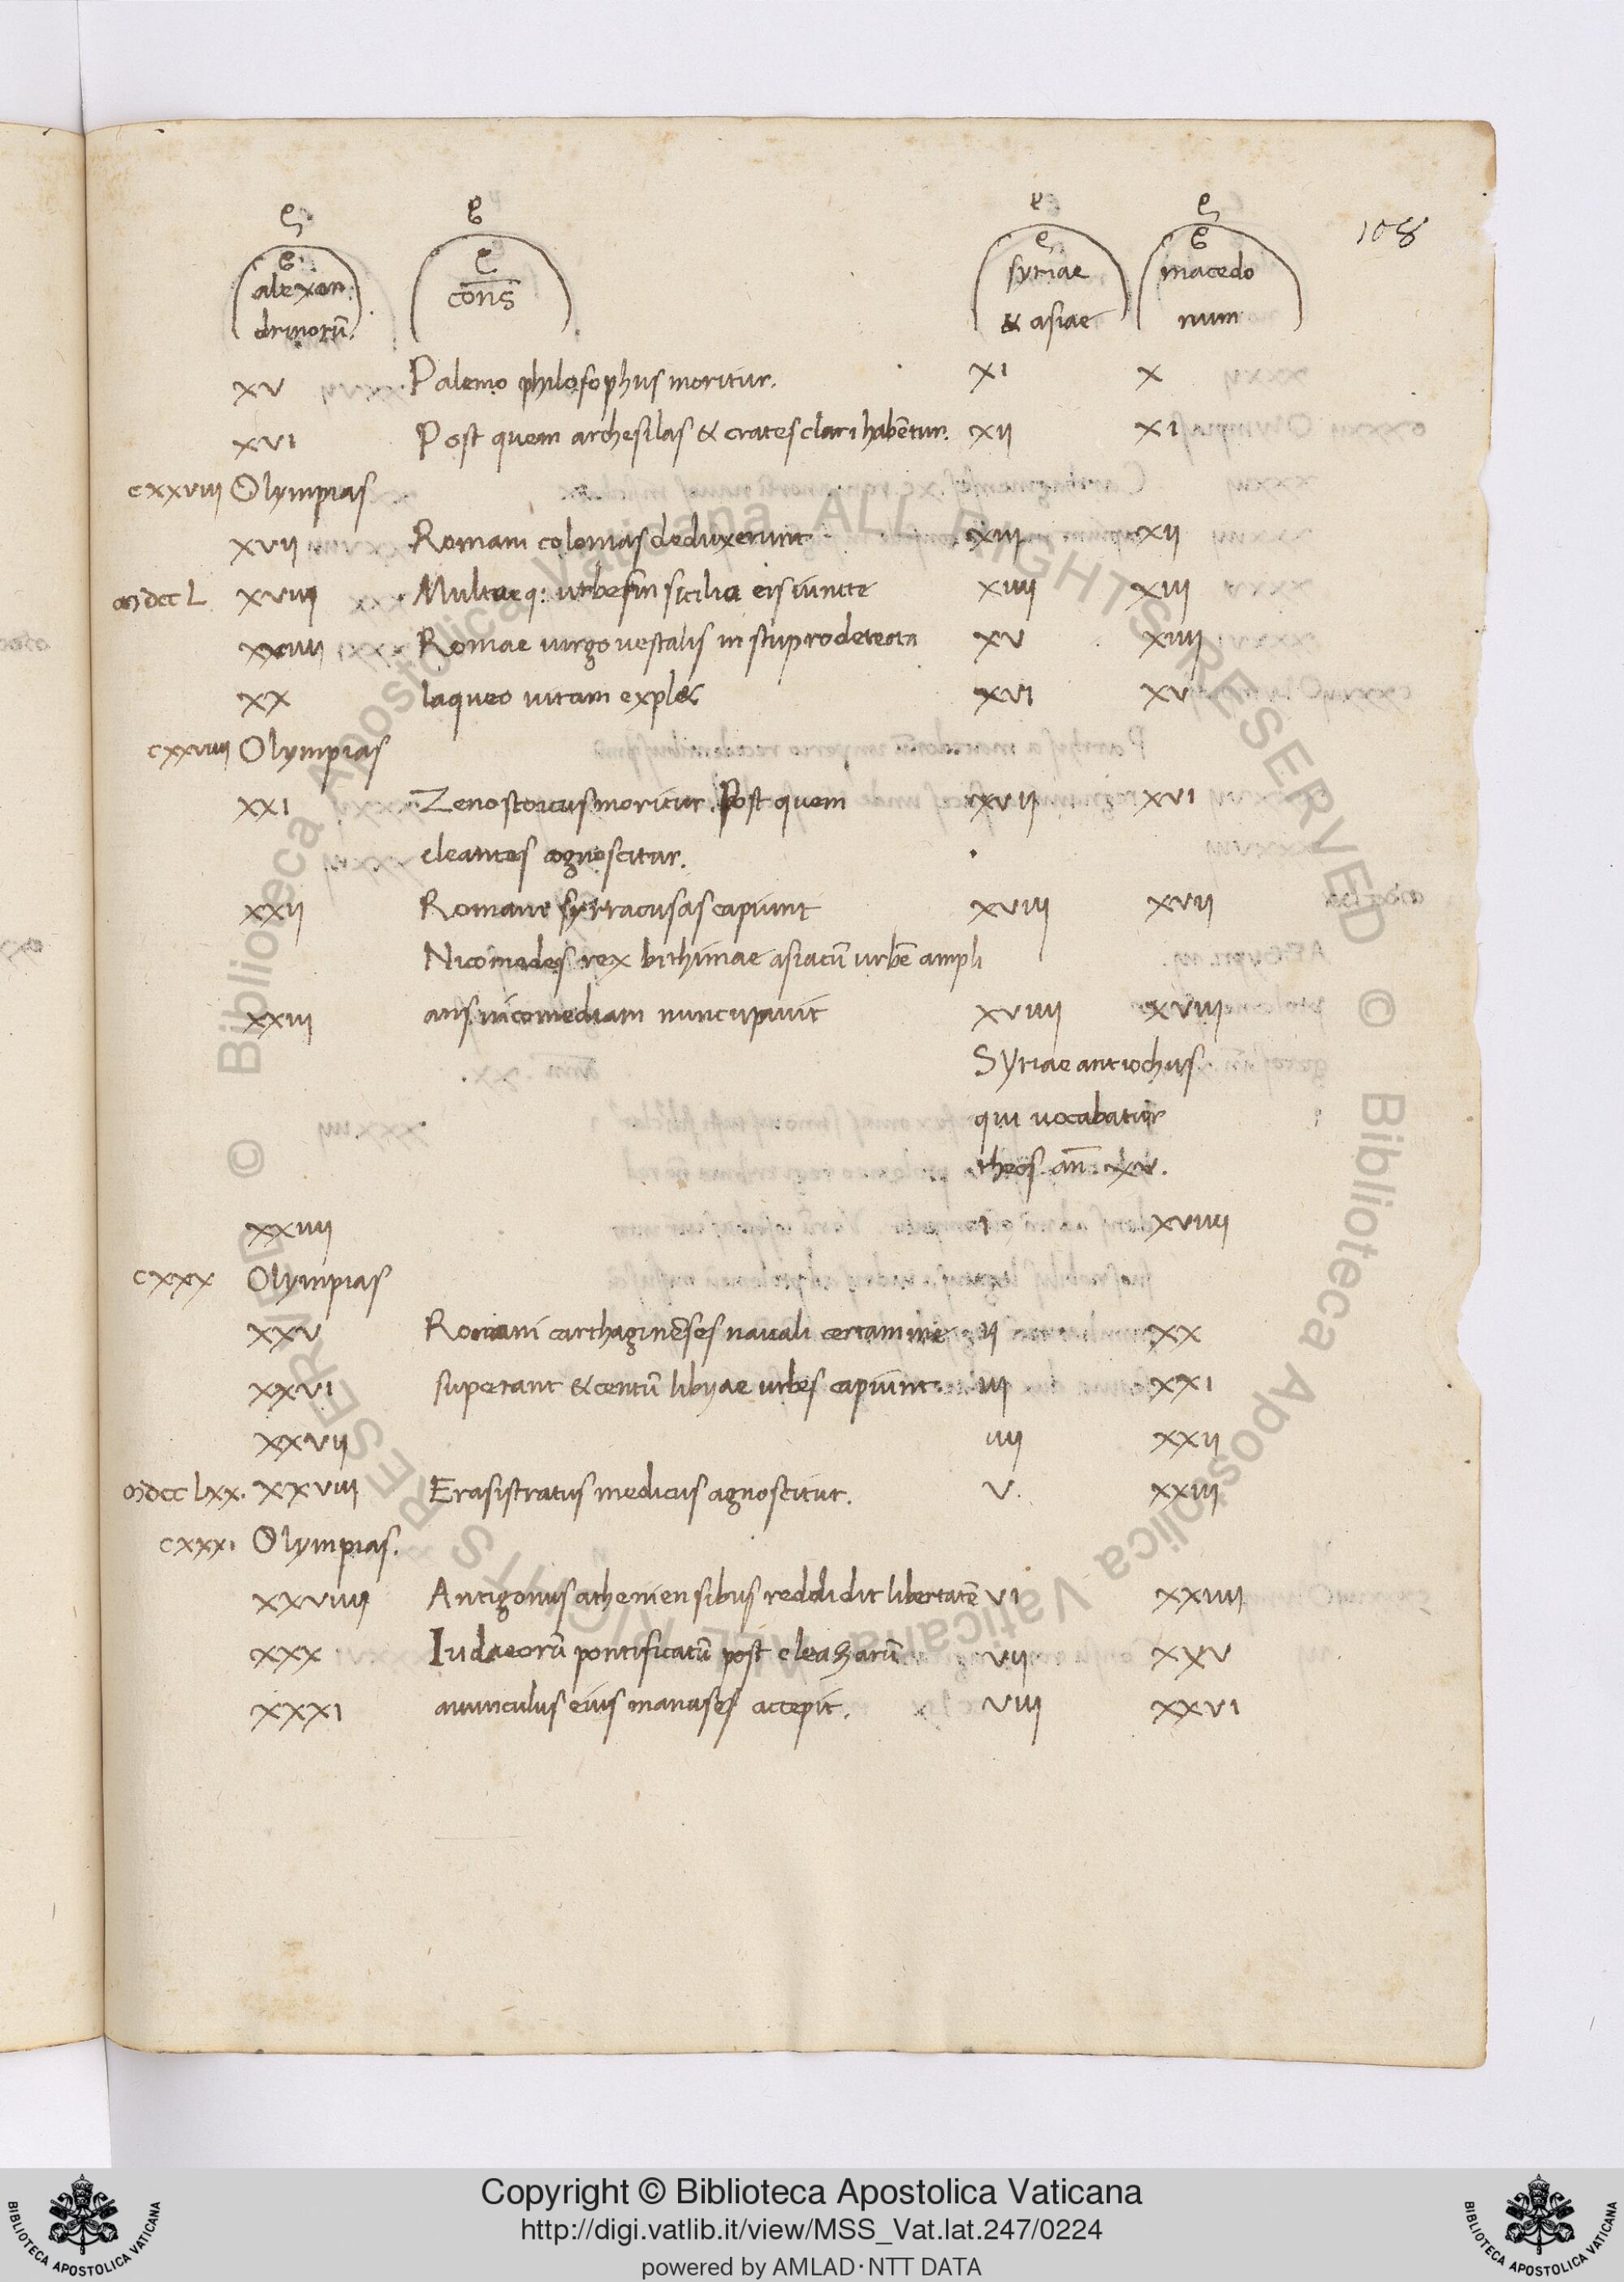 108
alexan
drinorū.
conš
syriae
& asiae
macedo
num
xv Palemo philosophus moritur. xi x
xvi Post quem archesilas & crates clari habētur. xii xi
cxxviii Olympias
xvii Romani colonias deduxerunt xiii xii
xviii Multaeq: urbes in sicilia eis iuncte xiiii xiii
xviiii Romae uirgo uestalis in stupro detecta xv xiiii
xx laqueo uitam expl& xvi xv
cxxviiii Olympias
xxi Zeno stoicus moritur. Post quem xvii xvi
cleantes agnoscitur.
xxii Romani syrracusas capiunt xviii xvii
Nicomedes rex bithiniae asiacū urbē ampli
xxiii ans nicomediam nuncupauit xviiii xviii
Syriae antiochus
qui uocabatur
theos. an̄. xv.
xxiiii i xviiii
cxxx Olympias
xxv Romani carthaginēses nauali certamine ii xx
xxvi superant & centū libyae urbes capiunt. iii xxi
xxvii iiii xxii
xxviii Erasistratus medicus agnoscitur. v. xxiii
cxxxi Olympias.
xxviiii Antigonus atheniensibus reddidit libertatē vi xxiiii
xxx Iudaeorū pontificatū post eleazarū vii xxv
xxxi auunculus eius manases accepit. viii xxvi
© Biblioteca Apostolica Vaticana ALL RIGHTS RESERVED
© Biblioteca Apostolica Vaticana ALL RIGHTS RESERVED
Copyright © Biblioteca Apostolica Vaticana
http://digi.vatlib.it/view/MSS_Vat.lat.247/0224
powered by AMLAD·NTT DATA
BIBLIOTECA APOSTOLICA VATICANA
BIBLIOTECA APOSTOLICA VATICANA